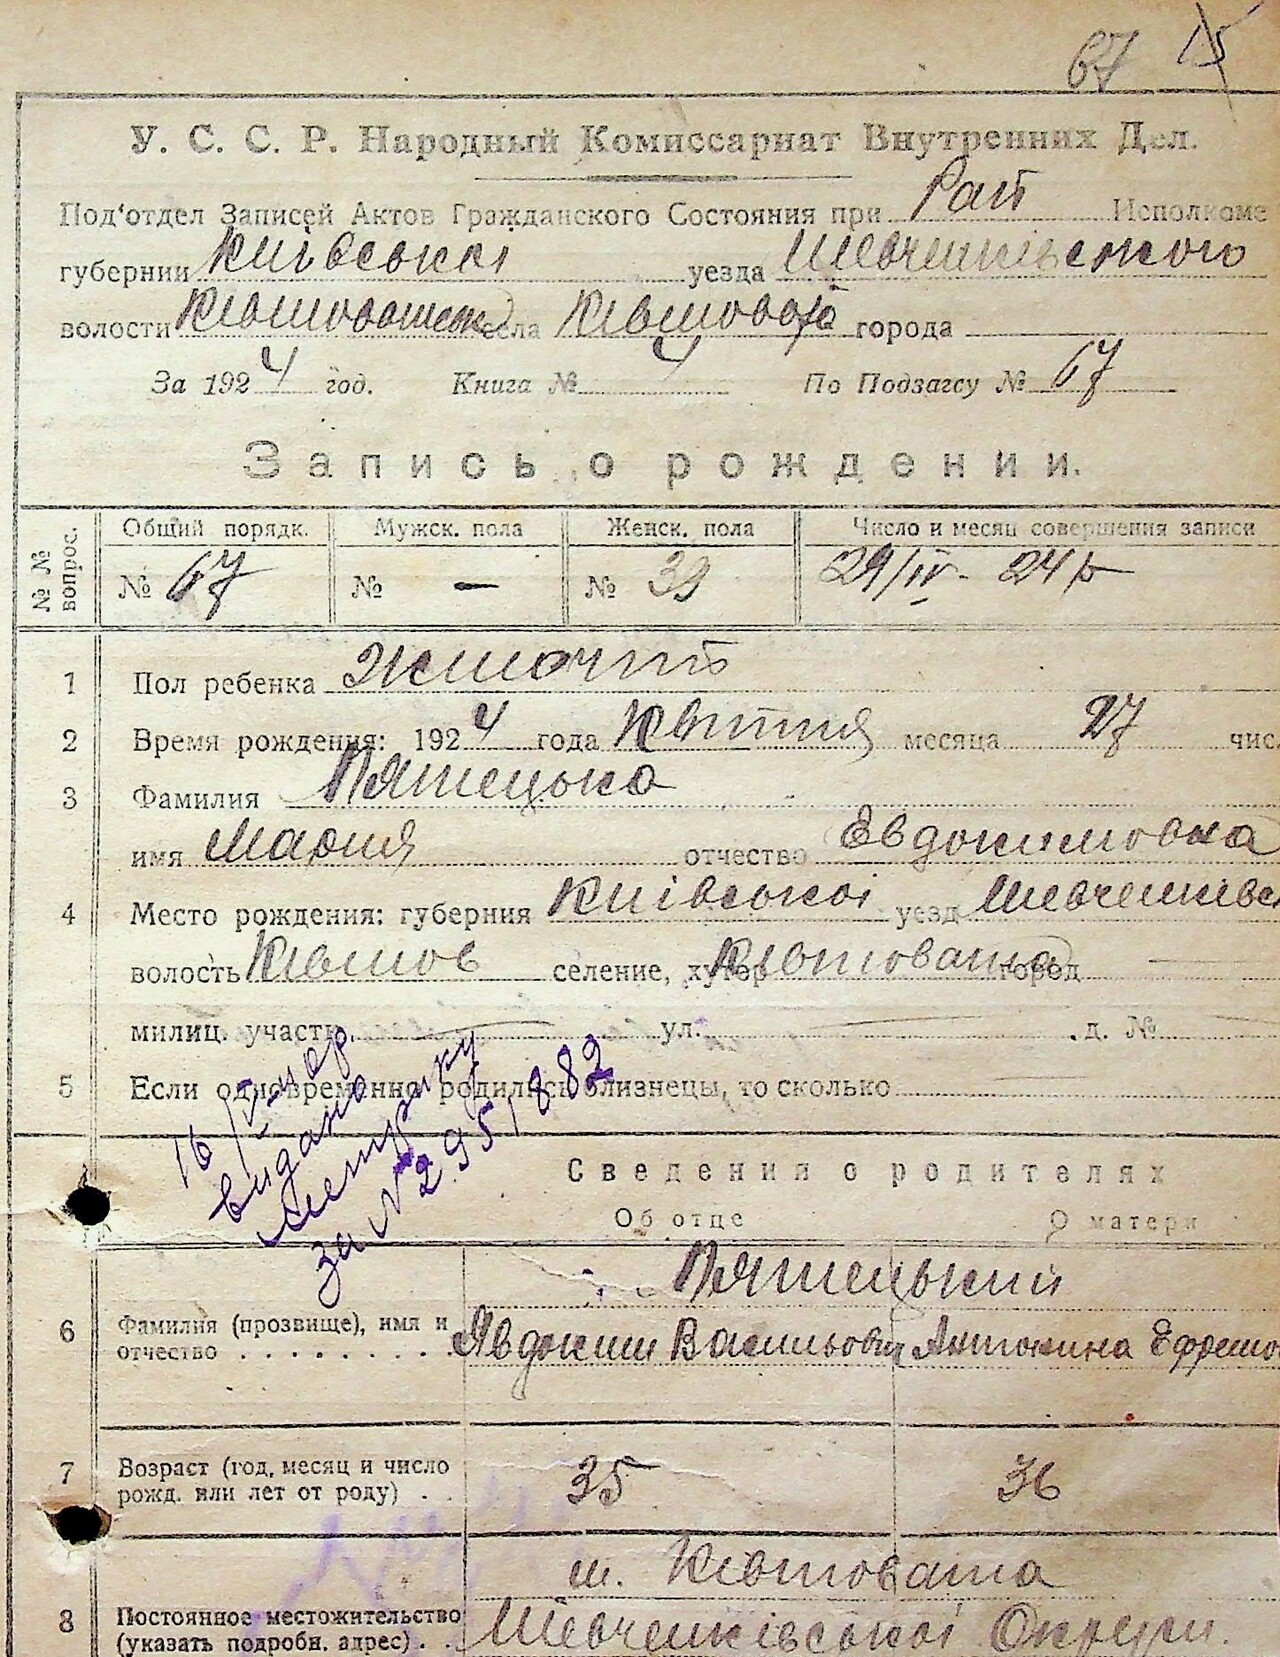 67 15
У. С. С. Р. Народный Комиссариат Внутренних Дел.
Под'отдел Записей Актов Гражданского Состояния при Рай Исполкоме
губернии Київської уезда Шевченківського
волости села города
За 1924 год. Книга № 4 По Подзагсу № 67
Запись о рождении.
№ № вопрос. Общий порядк. Мужск. пола Женск. пола Число и месяц совершения записи
№ 67 № — № 39 29/IV- 24 р
1 Пол ребенка Жіночий
2 Время рождения: 1924 года Квітня месяца 27 чис.
3 Фамилия Пятецька
имя Мария отчество Евдокимовна
4 Место рождения: губерния Київської уезд Шевченківс
волость селение, хутор город
милиц. участк. ул. д. №
5 Если одновременно родились близнецы, то сколько
16/V-цер
видано
метрику
за № 295/882
Сведения о родителях
Об отце О матери
Пятецький
6 Фамилия (прозвище), имя и отчество . . . . . . . . . Явдоким Васильович Антонина Ефремов
7 Возраст (год, месяц и число рожд. или лет от роду) . . 35 36
8 Постоянное местожительство (указать подробн. адрес) . . м. Кившовата
Шевченківської Округи.